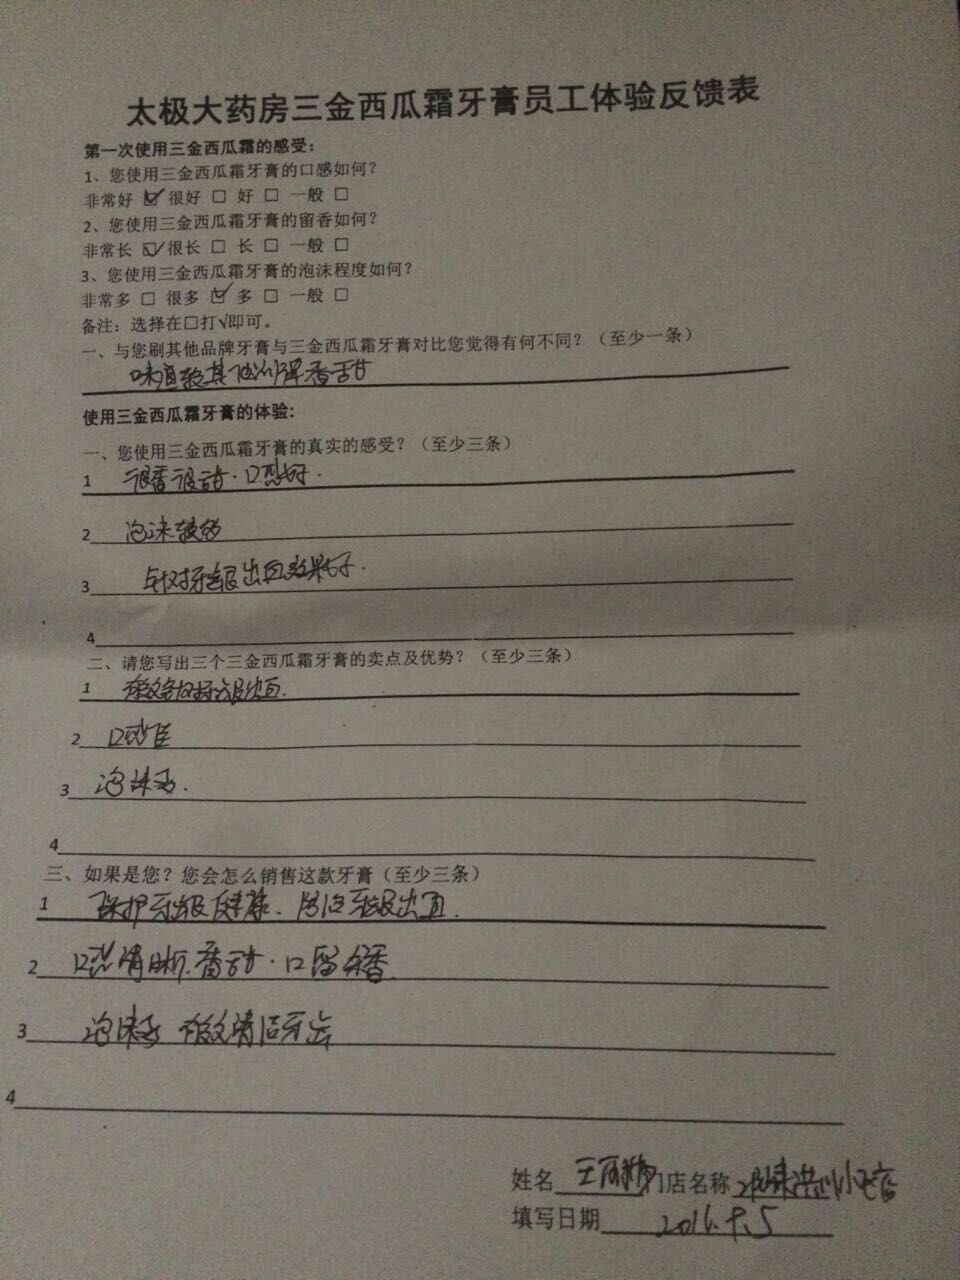 太极大药房三金西瓜霜牙膏员工体验反馈表
第一次使用三金西瓜霜的感受：
1、您使用三金西瓜霜牙膏的口感如何？
非常好 ☑ 很好 □ 好 □ 一般 □
2、您使用三金西瓜霜牙膏的留香如何？
非常长 ☑ 很长 □ 长 □ 一般 □
3、您使用三金西瓜霜牙膏的泡沫程度如何？
非常多 □ 很多 ☑ 多 □ 一般 □
备注：选择在□打√即可。
一、与您刷其他品牌牙膏与三金西瓜霜牙膏对比您觉得有何不同？（至少一条）
味道较其他 香甜
使用三金西瓜霜牙膏的体验：
一、您使用三金西瓜霜牙膏的真实的感受？（至少三条）
1 很香很甜.口感好.
2 泡沫较多
3 针对牙龈出血效果好.
4
二、请您写出三个三金西瓜霜牙膏的卖点及优势？（至少三条）
1 有效针对牙龈出血.
2 口感佳
3 泡沫多.
4
三、如果是您？您会怎么销售这款牙膏（至少三条）
1 保护牙龈健康、防治牙龈出血.
2 口感清晰.香甜.口留余香.
3 泡沫多 有效清洁牙齿
4
姓名 王 门店名称 店
填写日期 2016.9.5